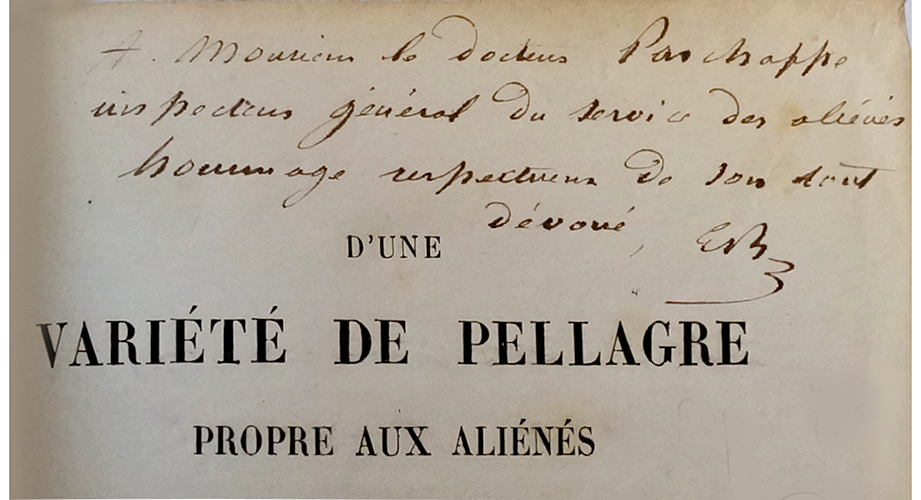 A Monsieur le docteur Parchappe
inspecteur général du service des aliénés
hommage respectueux de son tout
dévoué, EB
D'UNE
VARIÉTÉ DE PELLAGRE
PROPRE AUX ALIÉNÉS